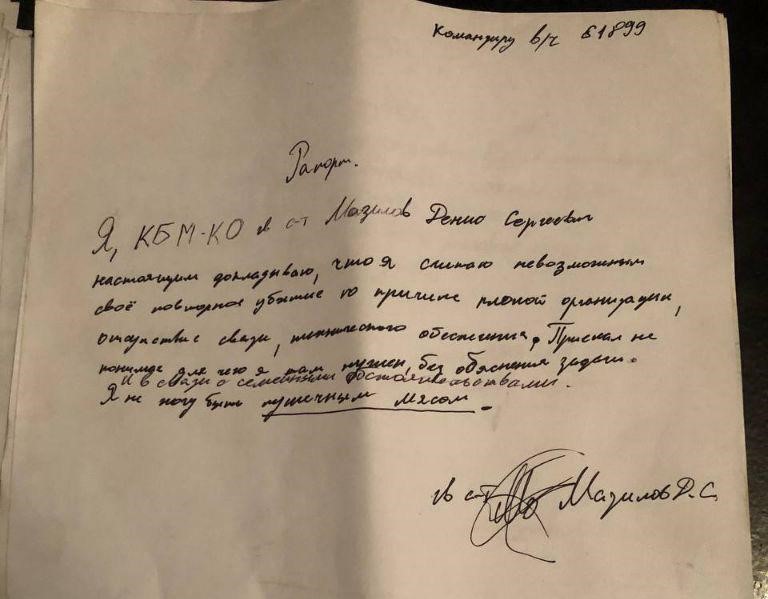 Командиру в/ч 61899
Рапорт.
Я, КБМ-КО гв с-т Мазилов Денис Сергеевич
настоящим докладываю, что я считаю невозможным
своё повторное убытие по причине плохой организации,
отсутствие связи, технического обеспечения. Приехал не
понимая для чего я там нужен, без обяснения задачи.
И в связи с семейными обстоятельствами.
Я не могу быть пушечным мясом.
гв с-т Мазилов Д.С.